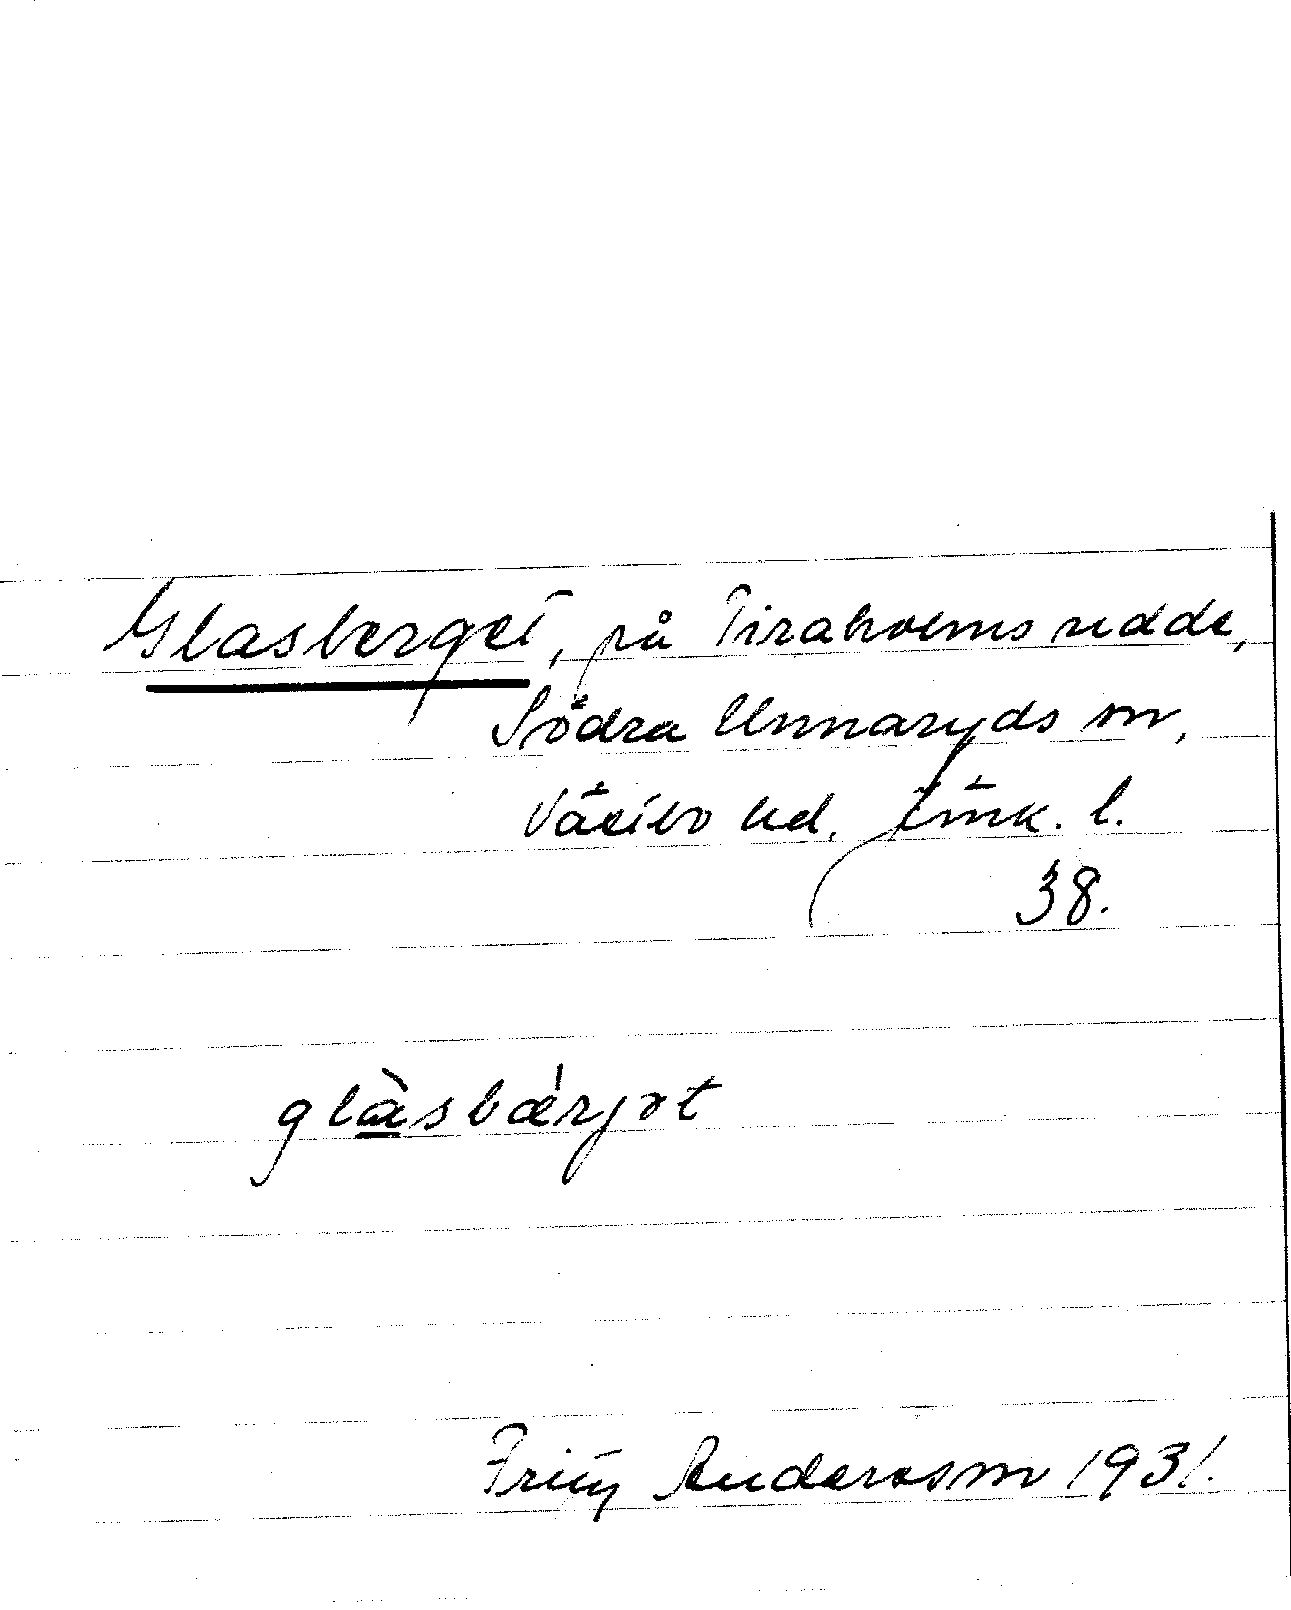 Glasberget, på Tiraholms udde,
Södra Unnaryds sn,
Västbo hd. Jönk. l.
38.
glàsbærjət
Fritz Andersson 1931.